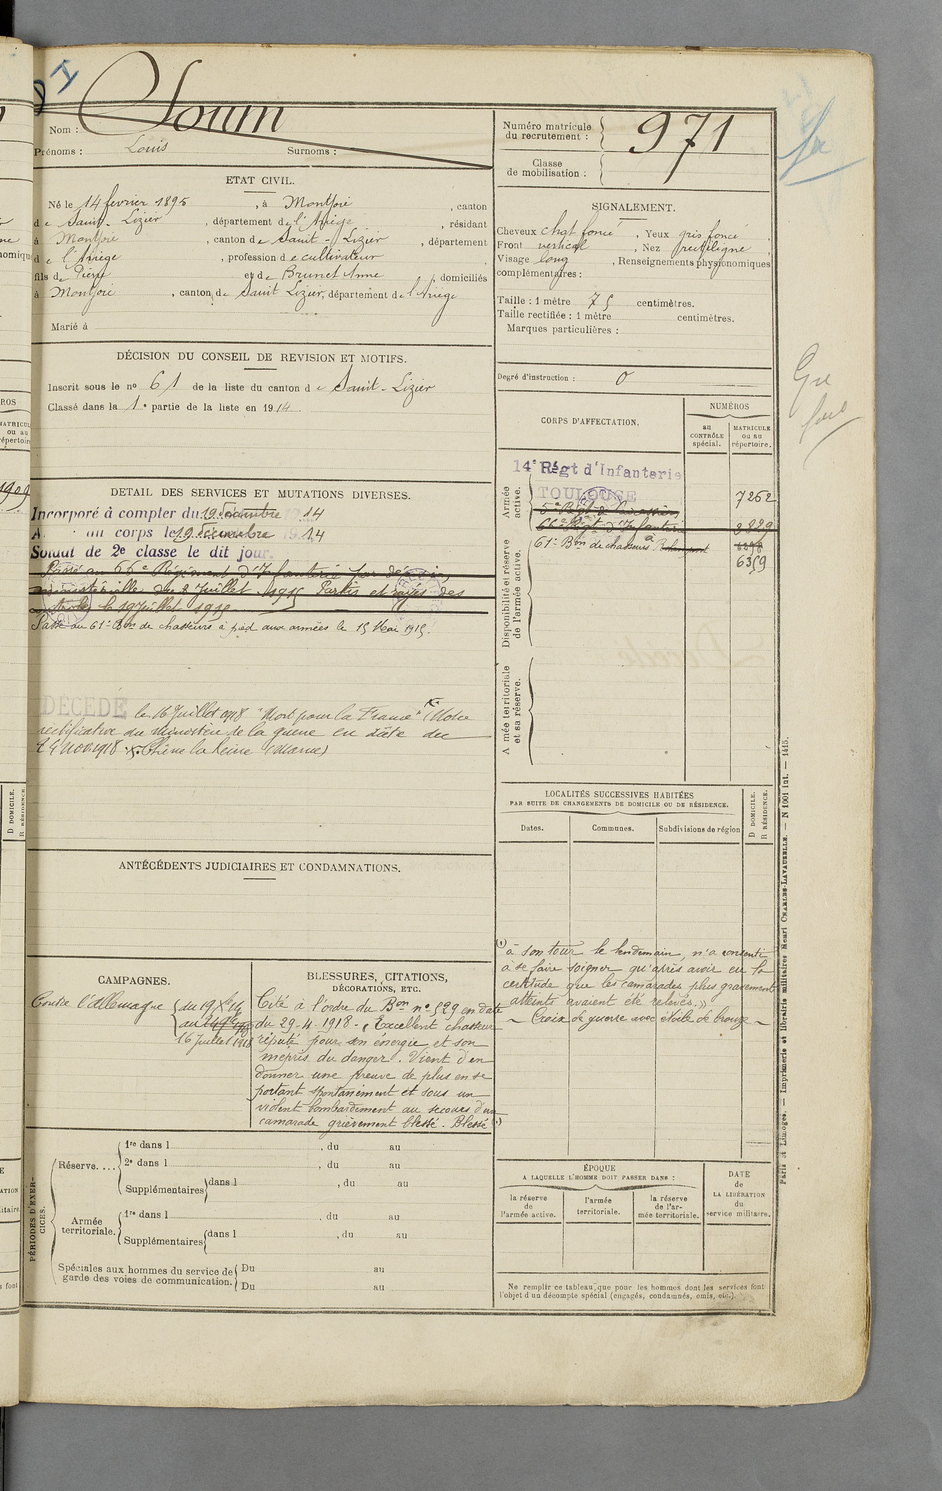 Nom : Soum
Prénoms : Louis Surnoms :
ETAT CIVIL.
Né le 14 février 1895, à Montjoie, canton
de Saint-Lizier, département de l'Ariège, résidant
à Montjoie, canton de Saint-Lizier, département
de l'Ariège, profession de cultivateur
fils de Pierre et de Brunet Anne, domiciliés
à Montjoie, canton de Saint Lizier, département de l'Ariège
Marié à
DÉCISION DU CONSEIL DE REVISION ET MOTIFS.
Inscrit sous le no 61 de la liste du canton de Saint-Lizier
Classé dans la 1e partie de la liste en 1914.
DETAIL DES SERVICES ET MUTATIONS DIVERSES.
Incorporé à compter du 19 Décembre 14
A au corps le 19 Décembre 1914
Soldat de 2e classe le dit jour.
Passé au 66e Régiment d'Infanterie par décision
ministérielle du 8 Juillet 1915 Partis et rayés des
contrôles le 19 Juillet 1915
Passé au 61e Bon de chasseurs à pied aux armées le 15 Mai 1915.
DÉCÉDÉ le 16 Juillet 1918 "Mort pour la France" x (Notice
rectificative du Ministère de la guerre en date du
24 nov. 1918 x. Chêne la Reine (Marne)
ANTÉCÉDENTS JUDICIAIRES ET CONDAMNATIONS.
CAMPAGNES.
Contre l'Allemagne du 19 Xbre 14
au
16 Juillet 1918
BLESSURES, CITATIONS,
DÉCORATIONS, ETC.
Cité à l'ordre du Bon no 529 en date
du 29-4-1918. « Excellent chasseur
réputé pour son énergie et son
mépris du danger. Vient d'en
donner une preuve de plus en se
portant spontanément et sous un
violent bombardement au secours d'un
camarade grièvement blessé. Blessé (1)
PÉRIODES D'EXERCICES.
Réserve....
1re dans l , du au
2e dans l , du au
Supplémentaires dans l , du au
Armée territoriale.
1re dans l , du au
Supplémentaires dans l , du au
Spéciales aux hommes du service de garde des voies de communication.
Du au
Du au
Numéro matricule du recrutement : 971
Classe de mobilisation :
SIGNALEMENT.
Cheveux chat foncé, Yeux gris foncé
Front vertical, Nez rectiligne
Visage long, Renseignements physionomiques
complémentaires :
Taille : 1 mètre 75 centimètres.
Taille rectifiée : 1 mètre centimètres.
Marques particulières :
Degré d'instruction : 0
CORPS D'AFFECTATION.
NUMÉROS
au CONTRÔLE spécial.
MATRICULE ou au répertoire.
Armée active.
14e Régt d'Infanterie 7262
TOULOUSE
66e Régt d'Infanterie
61e Bon de chasseurs à
6359
Disponibilité et réserve de l'armée active.
Armée territoriale et sa réserve.
LOCALITÉS SUCCESSIVES HABITÉES
PAR SUITE DE CHANGEMENTS DE DOMICILE OU DE RÉSIDENCE.
Dates. Communes. Subdivisions de région
D DOMICILE. R RÉSIDENCE.
(1) à son tour le lendemain, n'a consenti
à se faire soigner qu'après avoir eu la
certitude que les camarades plus gravement
atteints avaient été relevés. »
~ Croix de guerre avec étoile de bronze ~
ÉPOQUE
A LAQUELLE L'HOMME DOIT PASSER DANS :
la réserve de l'armée active.
l'armée territoriale.
la réserve de l'armée territoriale.
DATE de LA LIBÉRATION du service militaire.
Ne remplir ce tableau que pour les hommes dont les services font
l'objet d'un décompte spécial (engagés, condamnés, omis, etc.).
Paris et Limoges. — Imprimerie et librairie militaires Henri CHARLES-LAVAUZELLE. — N 1001 int. — 1415.